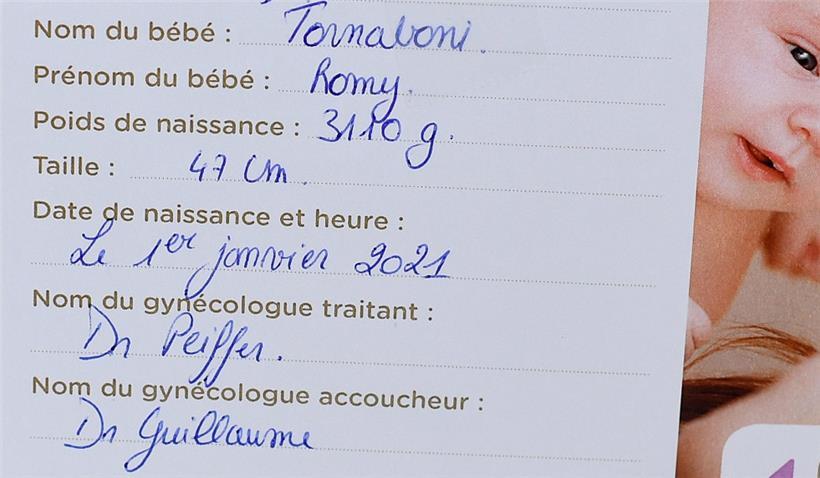 Nom du bébé : Tornaboni.
Prénom du bébé : Romy.
Poids de naissance : 3110 g.
Taille : 47 cm.
Date de naissance et heure :
Le 1er janvier 2021
Nom du gynécologue traitant :
Dr Peiffer.
Nom du gynécologue accoucheur :
Dr Guillaume